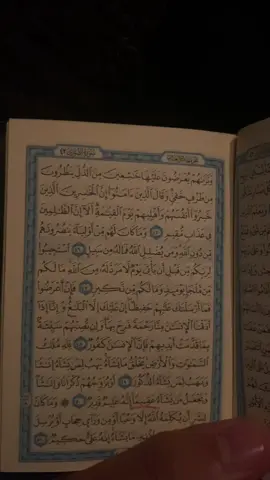 وَتَرَىٰهُمْ يُعْرَضُونَ عَلَيْهَا خَٰشِعِينَ مِنَ ٱلذُّلِّ يَنظُرُونَ
مِن طَرْفٍ خَفِيٍّ وَقَالَ ٱلَّذِينَ ءَامَنُوٓا۟ إِنَّ ٱلْخَٰسِرِينَ ٱلَّذِينَ
خَسِرُوٓا۟ أَنفُسَهُمْ وَأَهْلِيهِمْ يَوْمَ ٱلْقِيَٰمَةِ أَلَآ إِنَّ ٱلظَّٰلِمِينَ
فِى عَذَابٍ مُّقِيمٍ ٤٥ وَمَا كَانَ لَهُم مِّنْ أَوْلِيَآءَ يَنصُرُونَهُم
مِّن دُونِ ٱللَّهِ وَمَن يُضْلِلِ ٱللَّهُ فَمَا لَهُۥ مِن سَبِيلٍ ٤٦ ٱسْتَجِيبُوا۟
لِرَبِّكُم مِّن قَبْلِ أَن يَأْتِىَ يَوْمٌ لَّا مَرَدَّ لَهُۥ مِنَ ٱللَّهِ مَا لَكُم
مِّن مَّلْجَإٍ يَوْمَئِذٍ وَمَا لَكُم مِّن نَّكِيرٍ ٤٧ فَإِنْ أَعْرَضُوا۟
فَمَآ أَرْسَلْنَٰكَ عَلَيْهِمْ حَفِيظًا إِنْ عَلَيْكَ إِلَّا ٱلْبَلَٰغُ وَإِنَّآ إِذَآ
أَذَقْنَا ٱلْإِنسَٰنَ مِنَّا رَحْمَةً فَرِحَ بِهَا وَإِن تُصِبْهُمْ سَيِّئَةٌۢ
بِمَا قَدَّمَتْ أَيْدِيهِمْ فَإِنَّ ٱلْإِنسَٰنَ كَفُورٌ ٤٨ لِّلَّهِ مُلْكُ
ٱلسَّمَٰوَٰتِ وَٱلْأَرْضِ يَخْلُقُ مَا يَشَآءُ يَهَبُ لِمَن يَشَآءُ إِنَٰثًا
وَيَهَبُ لِمَن يَشَآءُ ٱلذُّكُورَ ٤٩ أَوْ يُزَوِّجُهُمْ ذُكْرَانًا وَإِنَٰثًا
وَيَجْعَلُ مَن يَشَآءُ عَقِيمًا إِنَّهُۥ عَلِيمٌ قَدِيرٌ ٥٠ ۞ وَمَا كَانَ
لِبَشَرٍ أَن يُكَلِّمَهُ ٱللَّهُ إِلَّا وَحْيًا أَوْ مِن وَرَآئِ حِجَابٍ أَوْ يُرْسِلَ
مَا يَشَآءُ إِنَّهُۥ عَلِىٌّ حَكِيمٌ ٥١